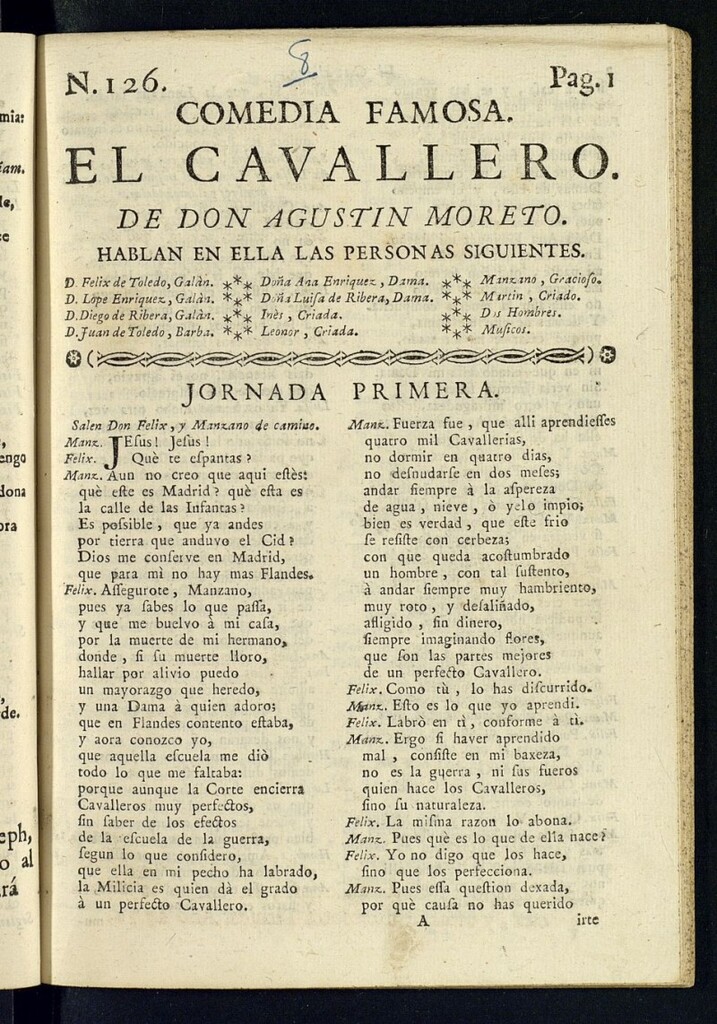 8
N. 126.
Pag. 1
COMEDIA FAMOSA.
EL CAVALLERO.
DE DON AGUSTIN MORETO.
HABLAN EN ELLA LAS PERSONAS SIGUIENTES.
D. Felix de Toledo, Galàn. *** Doña Ana Enriquez, Dama. *** Manzano, Gracioſo.
D. Lope Enriquez, Galàn. *** Doña Luiſa de Ribera, Dama. *** Martin, Criado.
D. Diego de Ribera, Galàn. *** Inès, Criada. *** Dos Hombres.
D. Juan de Toledo, Barba. *** Leonor, Criada. *** Muſicos.
JORNADA PRIMERA.
Salen Don Felix, y Manzano de camino.
Manz. JEſus! Jeſus!
Felix. Què te eſpantas?
Manz. Aun no creo que aqui eſtès:
què eſte es Madrid? què eſta es
la calle de las Infantas?
Es poſsible, que ya andes
por tierra que anduvo el Cid?
Dios me conſerve en Madrid,
que para mì no hay mas Flandes.
Felix. Aſſegurote, Manzano,
pues ya ſabes lo que paſſa,
y que me buelvo à mi caſa,
por la muerte de mi hermano,
donde, ſi ſu muerte lloro,
hallar por alivio puedo
un mayorazgo que heredo,
y una Dama à quien adoro;
que en Flandes contento eſtaba,
y aora conozco yo,
que aquella eſcuela me diò
todo lo que me faltaba:
porque aunque la Corte encierra
Cavalleros muy perfectos,
ſin ſaber de los efectos
de la eſcuela de la guerra,
ſegun lo que conſidero,
que ella en mi pecho ha labrado,
la Milicia es quien dà el grado
à un perfecto Cavallero.
Manz. Fuerza fue, que alli aprendieſſes
quatro mil Cavallerias,
no dormir en quatro dias,
no deſnudarſe en dos meſes;
andar ſiempre à la aſpereza
de agua, nieve, ò yelo impio;
bien es verdad, que eſte frio
ſe reſiſte con cerbeza;
con que queda acoſtumbrado
un hombre, con tal ſuſtento,
à andar ſiempre muy hambriento,
muy roto, y deſaliñado,
afligido, ſin dinero,
ſiempre imaginando flores,
que ſon las partes mejores
de un perfecto Cavallero.
Felix. Como tù, lo has diſcurrido.
Manz. Eſto es lo que yo aprendi.
Felix. Labrò en tì, conforme à tì.
Manz. Ergo ſi haver aprendido
mal, conſiſte en mi baxeza,
no es la guerra, ni ſus fueros
quien hace los Cavalleros,
ſino ſu naturaleza.
Felix. La miſma razon lo abona.
Manz. Pues què es lo que de ella nace?
Felix. Yo no digo que los hace,
ſino que los perfecciona.
Manz. Pues eſſa queſtion dexada,
por què cauſa no has querido
A
irte
mia:
iam.
engo
dona
ora
de.
eph,
o al
rá